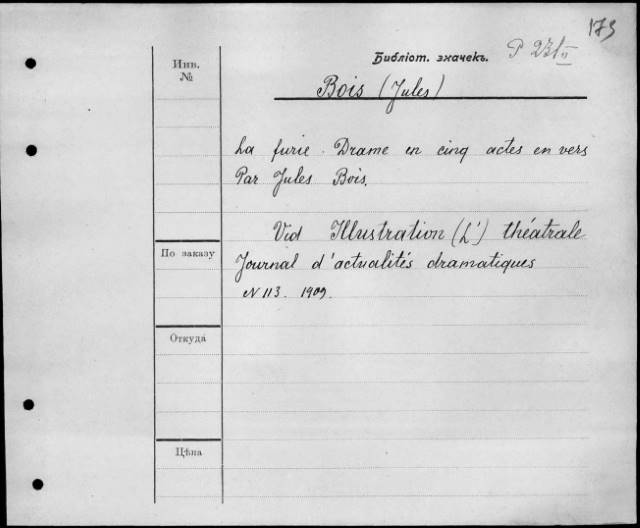 173
Библіот. значекъ. P 231 II
Инв.
№
Bois (Jules)
La furie. Drame en cinq actes en vers
Par Jules Bois.
Vid Illustration (L') théatrale
Journal d'actualités dramatiques
N 113. 1909.
По заказу
Откуда
Цѣна